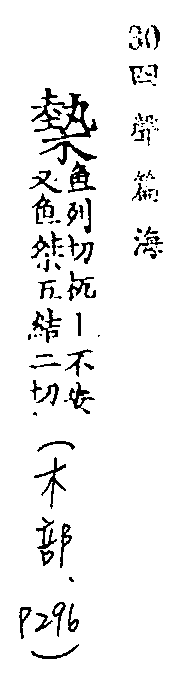 30四聲篇海
槷
鱼列切杌丨不安
又鱼桀五結二切.
(木部、P296)